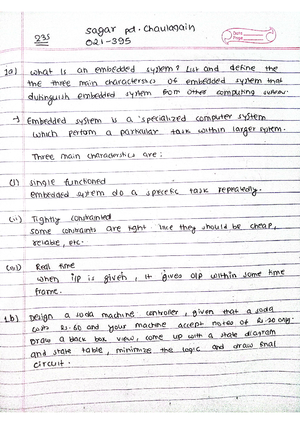 235
sagar pd. Chaulagain
021-395
Date
Page
1a) what is an embedded system? List and define the
the three main characterstics of embedded system that
distinguish embedded system from other computing system.
→ Embedded system is a specialized computer system
which perform a particular task within larger system.
Three main characterstics are:
(i) single functioned
Embedded system do a specific task repeatedly.
(ii) Tightly contrainted
some contraints are tight like they should be cheap,
reliable, etc.
(iii) Real time
when i/p is given, it gives o/p within some time
frame.
1.b) Design a soda machine controller, given that a soda
costs rs.60 and your machine accept notes of rs.20 only.
Draw a black box view, come up with a state diagram
and state table, minimize the logic and draw final
circuit.